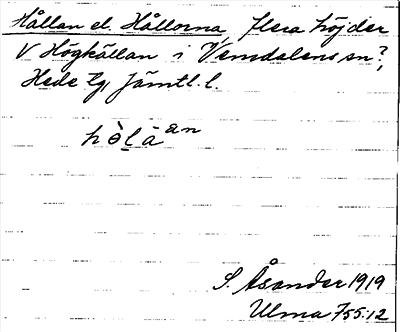 Hållan el. Hållorna, flera höjder
V Högkällan i Vemdalens sn?,
Hede tg, Jämtl. l.
hòlā an
S. Åsander 1919
Ulma 755:12